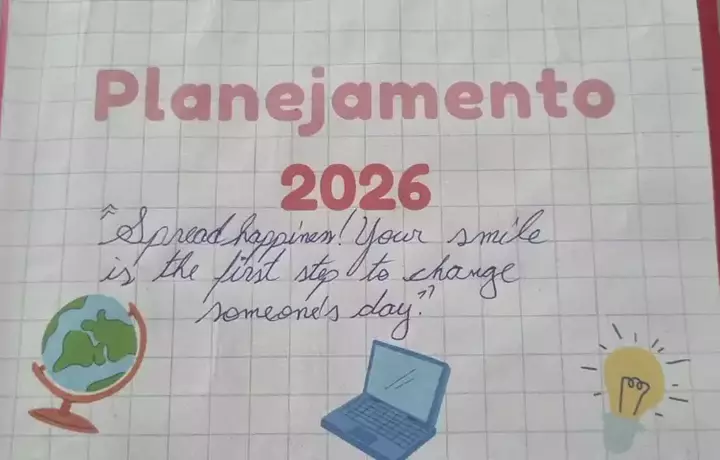 Planejamento
2026
"Spread happiness! Your smile
is the first step to change
someone's day."